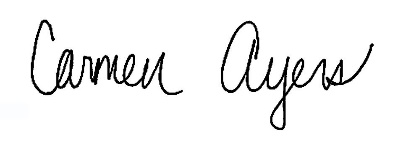 Carmen Ayers